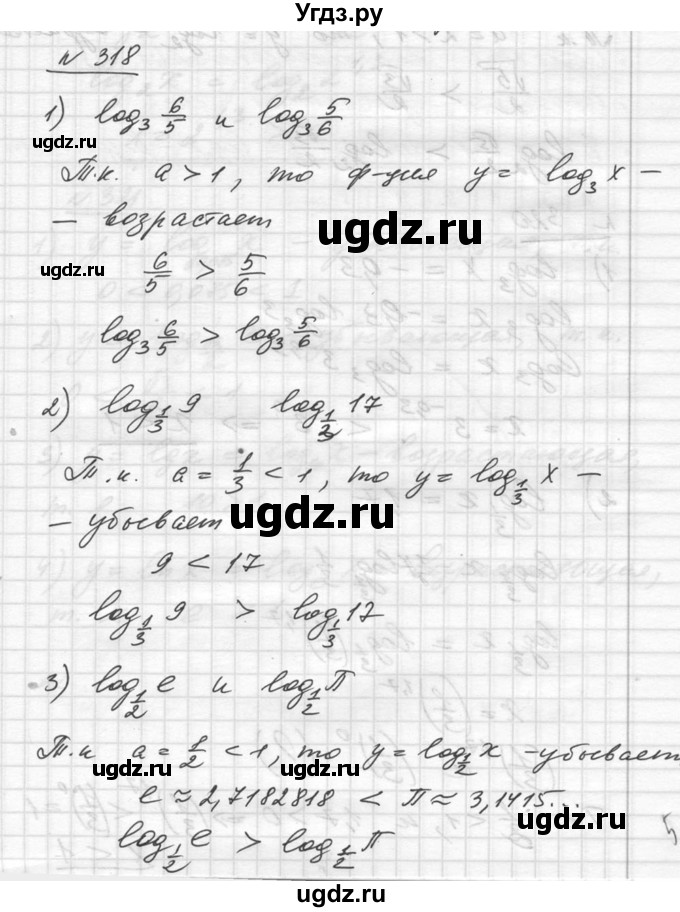 Угдз.ру
N 318
1) log₃ 6/5 и log₃ 5/6
ugdz.ru ugdz.ru
Т.к. a > 1, то ф-ция y = log₃ x –
– возрастает
ugdz.ru
ugdz.ru 6/5 > 5/6
log₃ 6/5 > log₃ 5/6
ugdz.ru ugdz.ru
2) log_{1/3} 9 log_{1/3} 17
Т.к. a = 1/3 < 1, то y = log_{1/3} x –
– убывает
ugdz.ru
9 < 17
log_{1/3} 9 > log_{1/3} 17
ugdz.ru ugdz.ru
3) log_{1/2} e и log_{1/2} π
Т.к a = 1/2 < 1, то y = log_{1/2} x - убывает
ugdz.ru ugdz.ru
e ≈ 2,7182818 < π ≈ 3,1415...
ugdz.ru
log_{1/2} e > log_{1/2} π
ugdz.ru